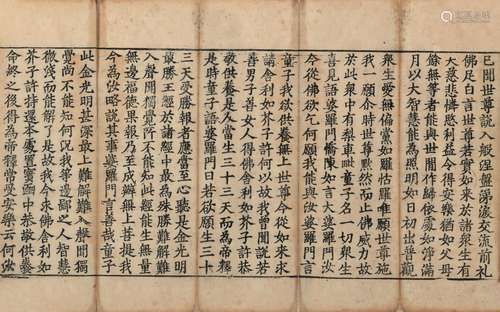 已聞世尊說入般涅盤涕淚交流前礼
佛足白言世尊若實如來於諸眾生有
大慈悲憐愍利益令得安樂猶如父母
餘無等者能與世間作歸依處如淨滿
月以大智慧能為照明如日初出普觀
眾生愛無偏黨如羅怙羅唯願世尊施
我一願尒時世尊默然而止佛威力故
於此眾中有梨車毗童子名一切眾生
喜見語婆羅門憍陳如言大婆羅門汝
今從佛欲乞何願我能與汝婆羅門言
童子我欲供養無上世尊今從如來求
請舍利如芥子許何以故我曾聞說若
善男子善女人得佛舍利如芥子許恭
敬供養是人當生三十三天而為帝釋
是時童子語婆羅門曰若欲願生三十
三天受勝報者應當至心聽是金光明
最勝王經於諸經中最為殊勝難解難
入聲聞獨覺所不能知此經能生無量
無邊福德果報乃至成辦無上菩提我
今為汝略說其事婆羅門言善哉童子
此金光明甚深最上難解難入聲聞獨
覺尚不能知何況我等邊鄙之人智慧
微淺而能解了是故我今求佛舍利如
芥子許持還本處置寶函中恭敬供養
命終之後得為帝釋常受安樂云何汝